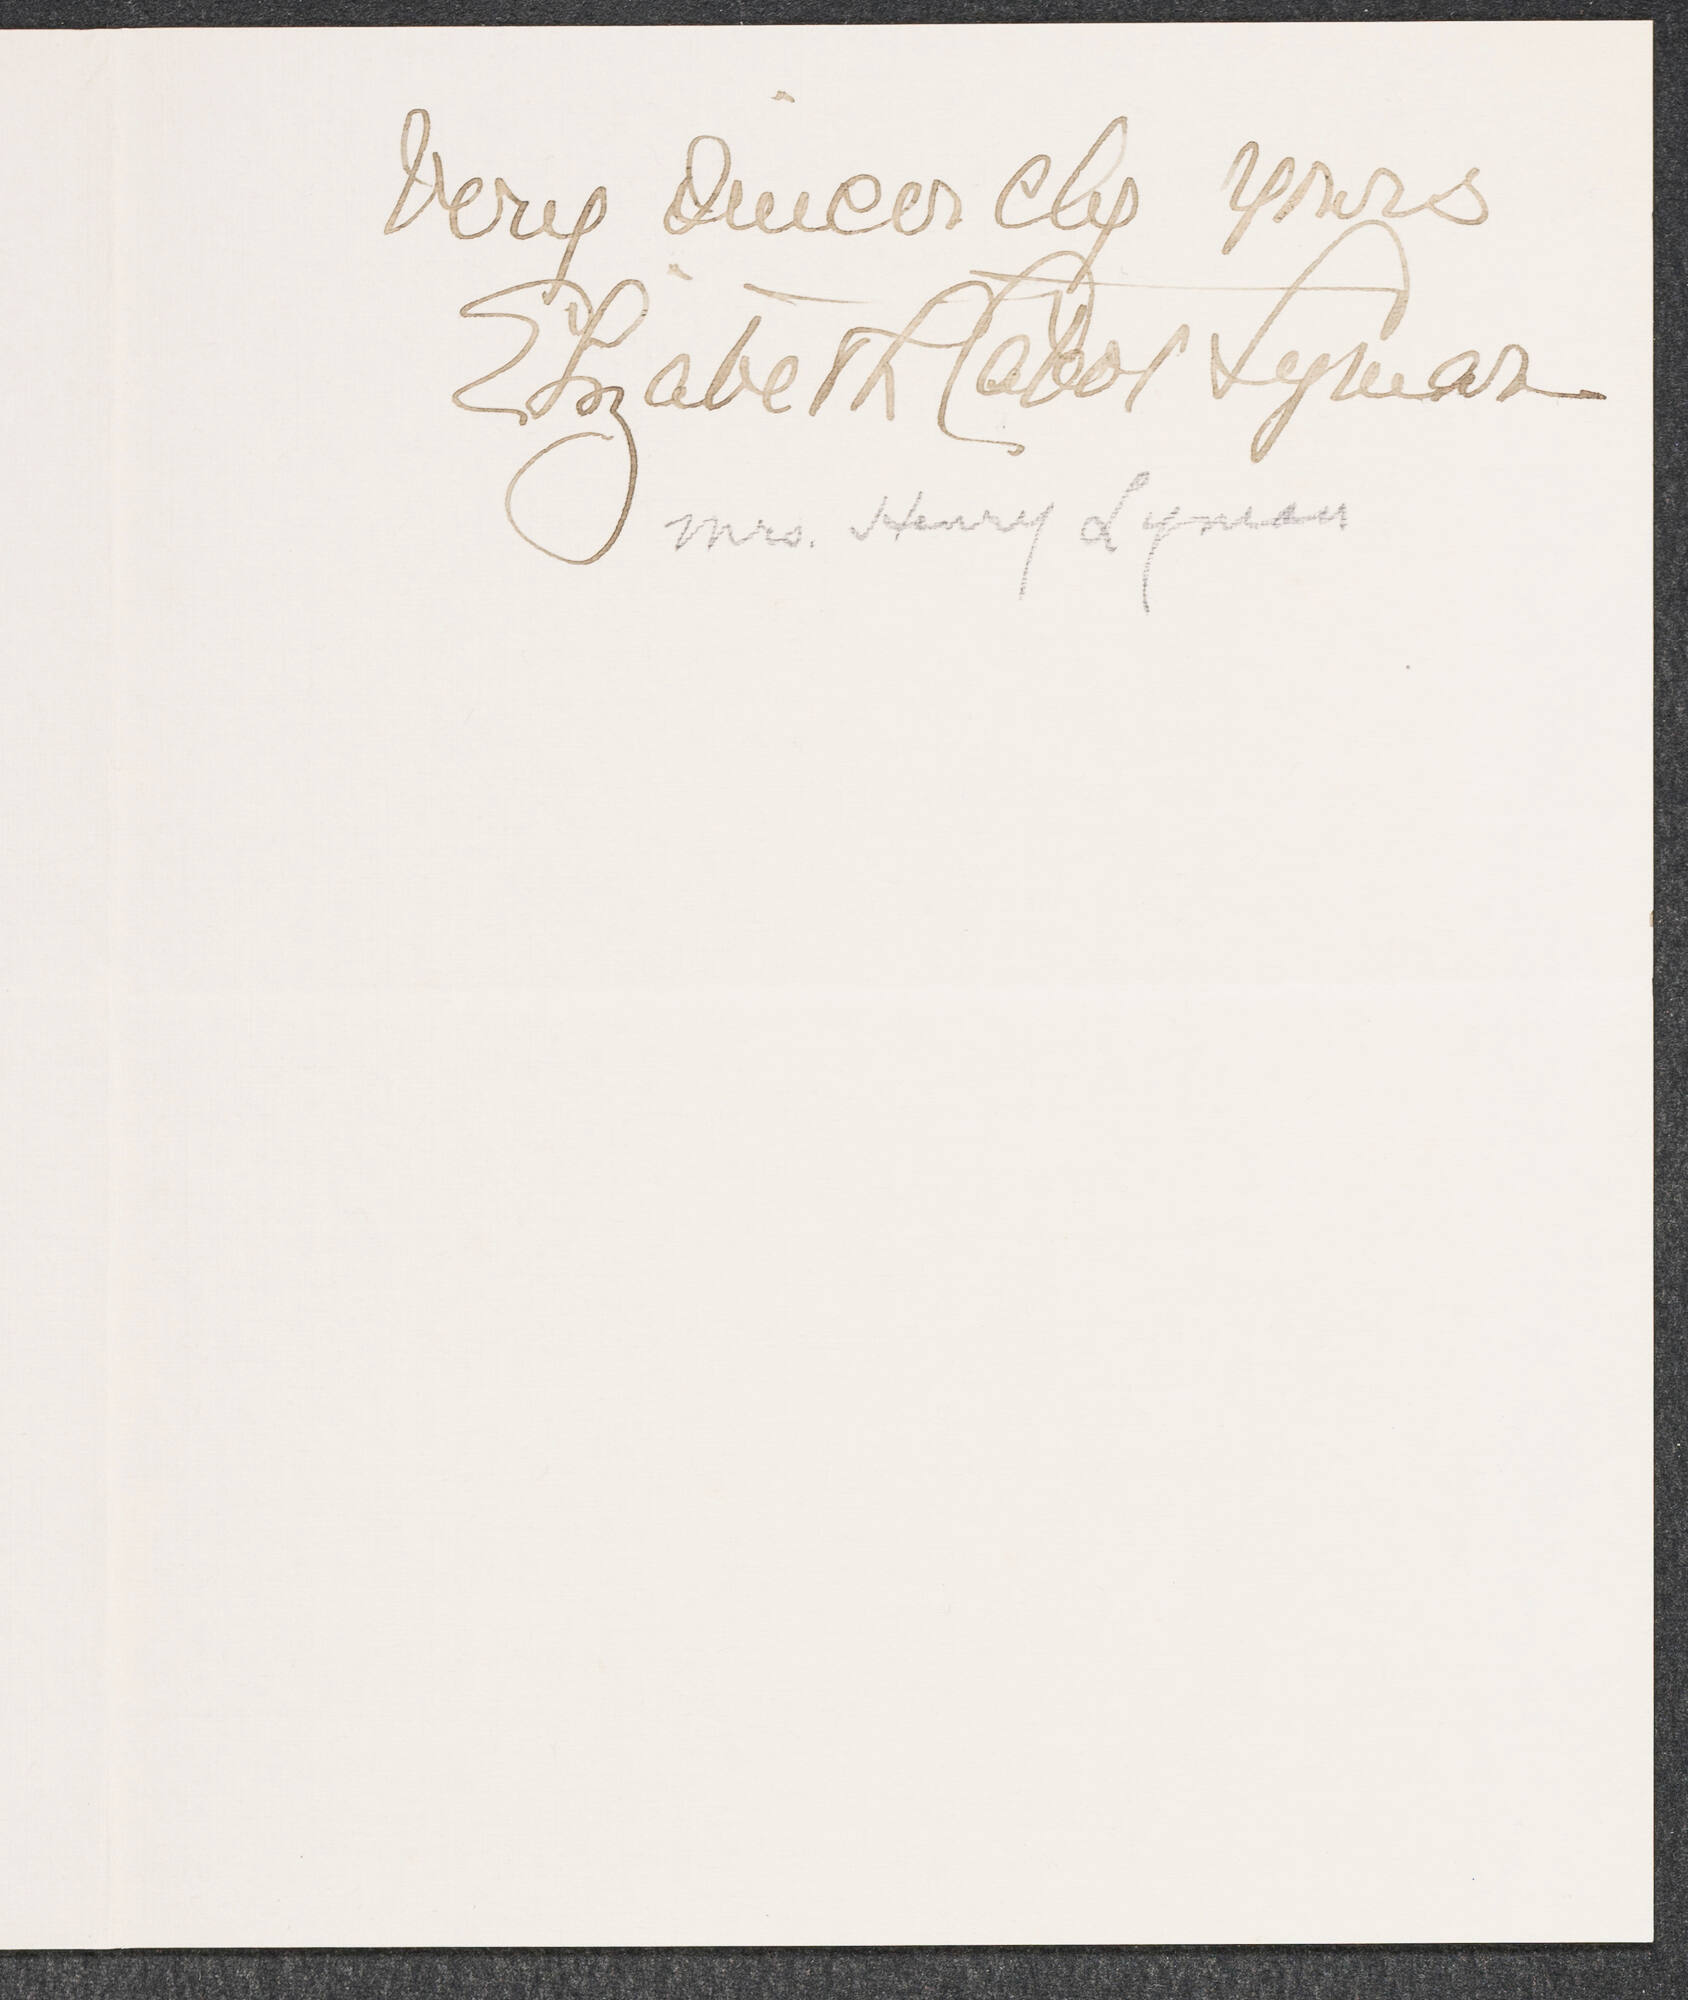 Very Sincerely yours
Elizabeth Cabot Lyman
Mrs. Henry Lyman